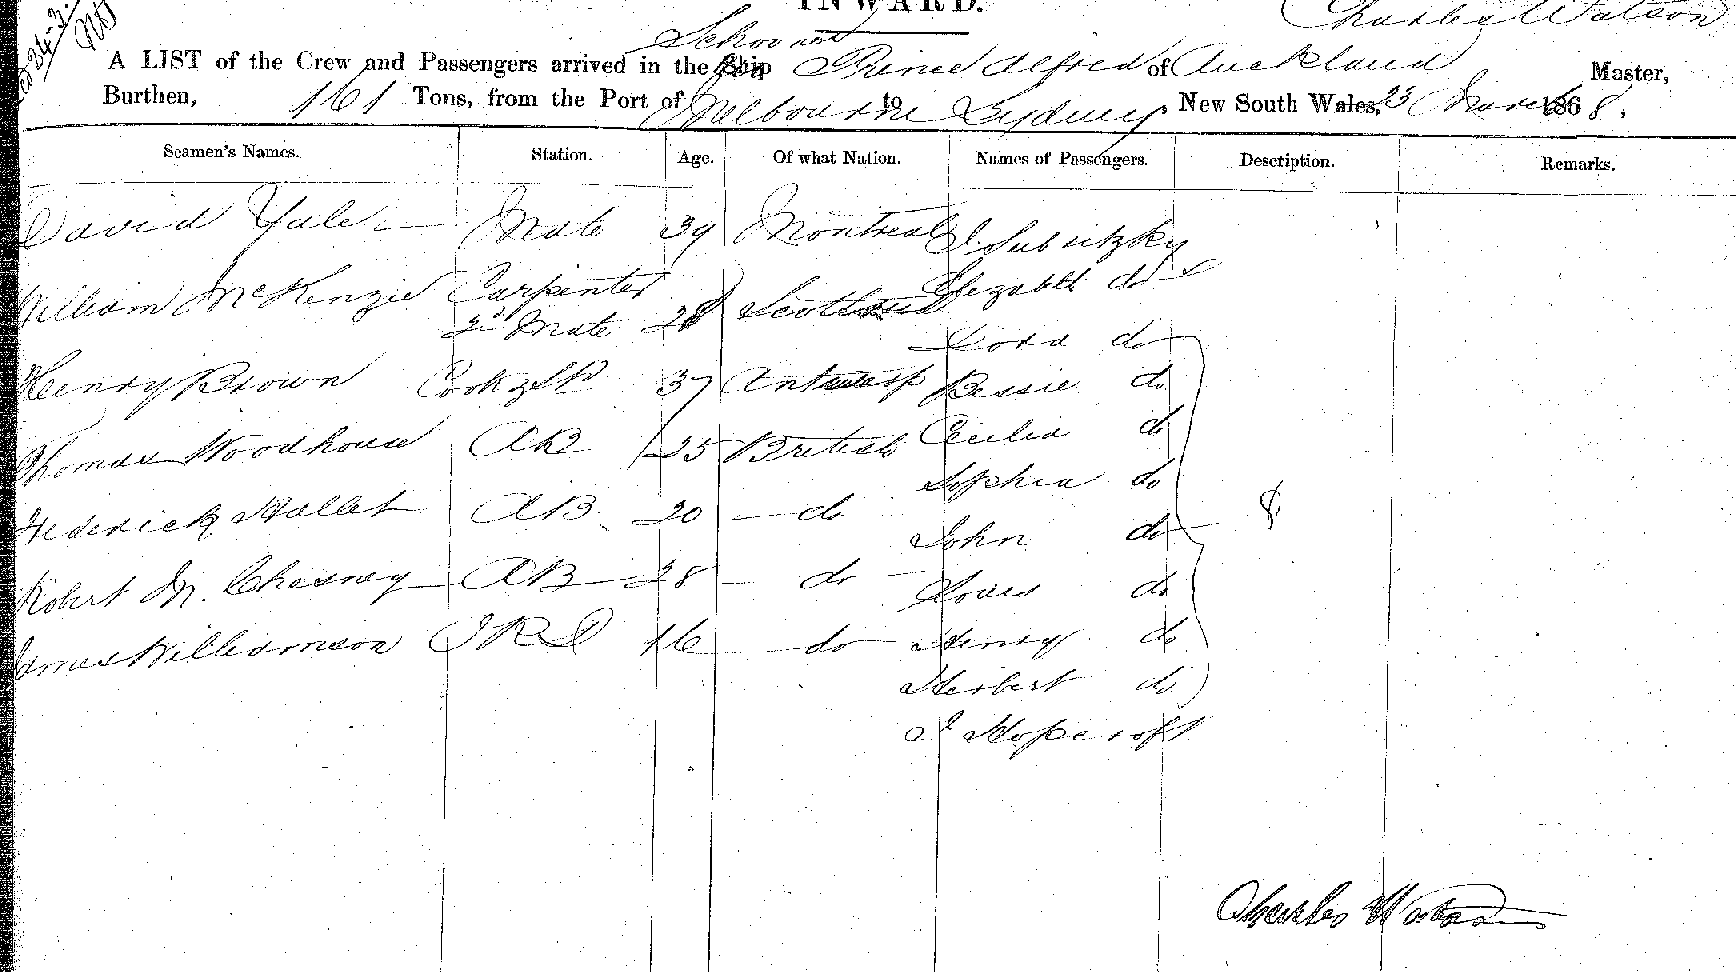 INWARD.
Charles Watson
Schooner
A LIST of the Crew and Passengers arrived in the Ship Prince Alfred of Auckland Master,
Burthen, 161 Tons, from the Port of Melbourne to Sydney New South Wales, 23 March 1868.
Seamen's Names. Station. Age. Of what Nation. Names of Passengers. Description. Remarks.
David Yule Mate 39 Montreal J. Subritzky
William McKenzie Carpenter Elezabeth do
2nd Mate 28 Scotland
Dora do
Henry Brown Cook & St 37 Antwerp Bessie do
Thomas Woodhouse AB 25 British Cecilia do
Sophia do
Frederick Hallet AB 20 do
John do 8
Robert M. Chesney AB 28 do Louis do
James Williamson 16 do Henry do
Herbert do
J Hopcroft
Charles Watson